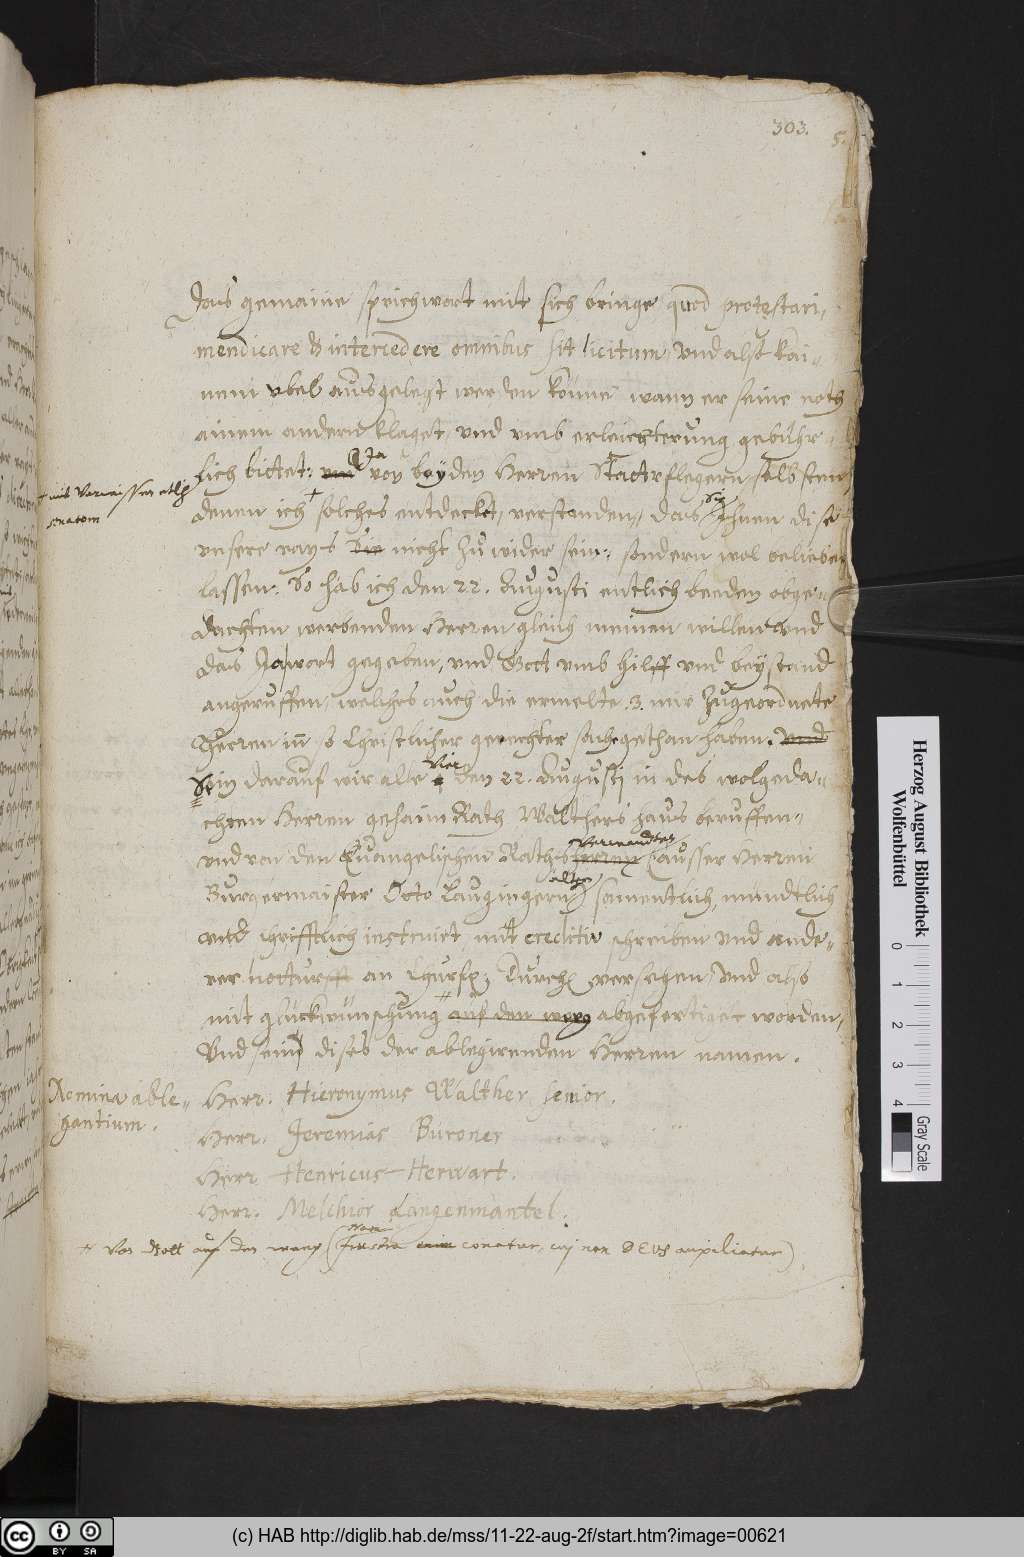 303.
5.
das gemaine sprichwort mit sich bringe, quod protestari,
mendicare & intercedere omnibus sit licitum, vnd also kai-
nem vbel ausgelegt werden könne wann er seine noth
ainem andern klaget, vnd vmb erleichterung gebühr-
lich bittet: vnd Ja von beyden Herren Stadtpflegern selbsten,
+ mit Vorwissen etlich
senatorn
denen ich + solches entdeckt, verstanden, das sie Ihnen dise
vnsere rays Sie nicht zu wider sein: sondern wol belieben
lassen: So hab ich den 22. Augusti entlich beeden obge-
dachten werbenden Herren gleich meinen willen vnd
das Jawort gegeben, vnd Gott vmb hilff vnd beystand
angeruffen, welches auch die ermelte 3. mir zugeordnete
Herren in so Christlicher gerechter sach gethan haben. Vnd
Sein darauf wir alle Vier den 22. Augusti in des wolgeda-
chten Herren gehaim Rath Walthers haus beruffen-
vnd von den Euangelischen Raths herren Verwandten (ausser Herren
Burgermaister Otto Laugingern alten) samentlich, mundtlich
vnd schrifftlich instruirt, mit creditiv schreiben vnd ande-
rer notturfft an Churfr: Durchl versehen, vnd also
mit glückwünschung auf den weeg abgefertiget worden,
Vnd seind dises der ablegirenden Herren namen.
Nomina able-
gantium.
Herr: Hieronymus Walther senior.
Herr. Jeremias Buroner
Herr Henricus Herwart.
Herr. Melchior Langenmantel.
+ Von Gott auf den weeg (Nam frustra enim conatur, cui non DEUS auxiliatur)
Herzog August Bibliothek
Wolfenbüttel
0 1 2 3 4
Gray Scale
cc BY SA
(c) HAB http://diglib.hab.de/mss/11-22-aug-2f/start.htm?image=00621